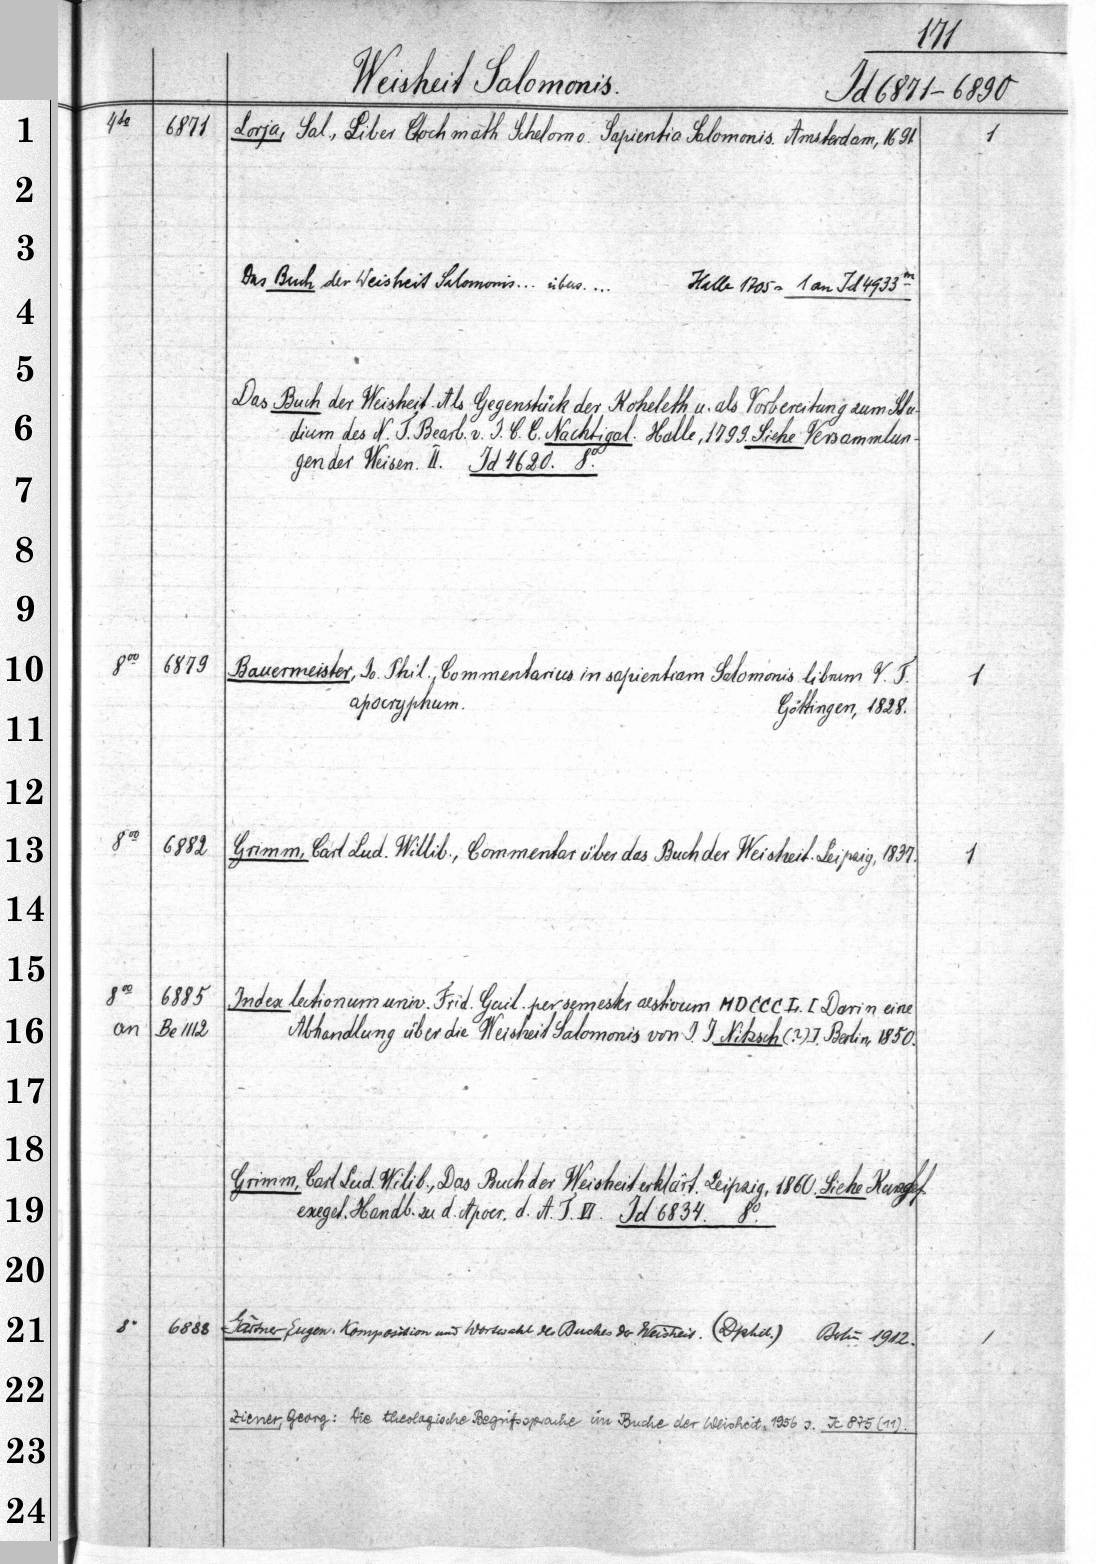 171
Weisheit Salomonis. Id 6871-6890
1 4to 6871 Lorja, Sal., Liber Chochmath Schelomo. Sapientia Salomonis. Amsterdam, 1691 1
2
3
Das Buch der Weisheit Salomonis... übers. ... Halle 1705 = 1 an Id 4933 m
4
5
Das Buch der Weisheit. Als Gegenstück der Koheleth u. als Vorbereitung zum Stu-
6 dium des N. T. Bearb. v. J. C. C. Nachtigal. Halle, 1799. Siehe Versammlun-
gen der Weisen. II. Id 4620. 8o.
7
8
9
10 8oo 6879 Bauermeister, Jo. Phil., Commentarius in sapientiam Salomonis librum V. T. 1
apocryphum. Göttingen, 1828.
11
12
13 8oo 6882 Grimm, Carl Lud. Willib., Commentar über das Buch der Weisheit. Leipzig, 1837. 1
14
15
8oo 6885 Index lectionum univ. Frid. Guil. per semestr aestivum MDCCCL. [Darin eine
16 an Be 1112 Abhandlung über die Weisheit Salomonis von J. J Nitzsch (?)]. Berlin, 1850.
17
18
Grimm, Carl Lud. Wilib., Das Buch der Weisheit erklärt. Leipzig, 1860. Siehe Kurzgef
19 exeget. Handb. zu d. Apocr. d. A. T. VI. Id 6834. 8o.
20
21 8° 6888 Gärtner, Eugen. Komposition und Wortwahl des Buches der Weisheit. (Dphil.) Berlin 1912. 1
22
Ziener, Georg: Die theologische Begriffssprache im Buche der Weisheit. 1956 s. Ic 875 (11).
23
24